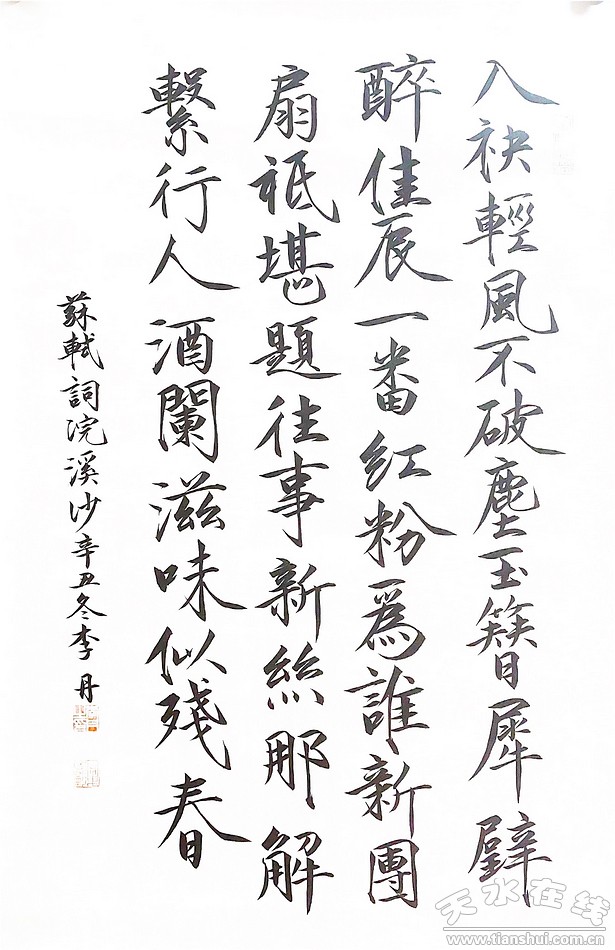 入袂輕風不破塵玉簪犀璧
醉佳辰一番紅粉爲誰新團
扇祇堪題往事新絲那解
繫行人酒闌滋味似殘春
蘇軾詞浣溪沙辛丑冬李丹
天水在线
www.tianshui.com.cn